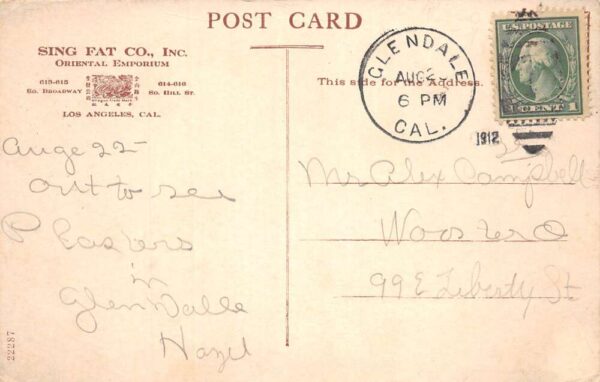 POST CARD
SING FAT CO., INC.
ORIENTAL EMPORIUM
613-615
SO. BROADWAY
614-616
SO. HILL ST.
LOS ANGELES, CAL.
This side for the Address.
GLENDALE
AUG
6 PM
CAL.
1912
U.S. POSTAGE
1 CENT 1
Auge 22
out to see
P Easters
in
Glen Dalle
Hazel
Mrs Alex Campbell
Wooster O
99 E Liberty St
22287